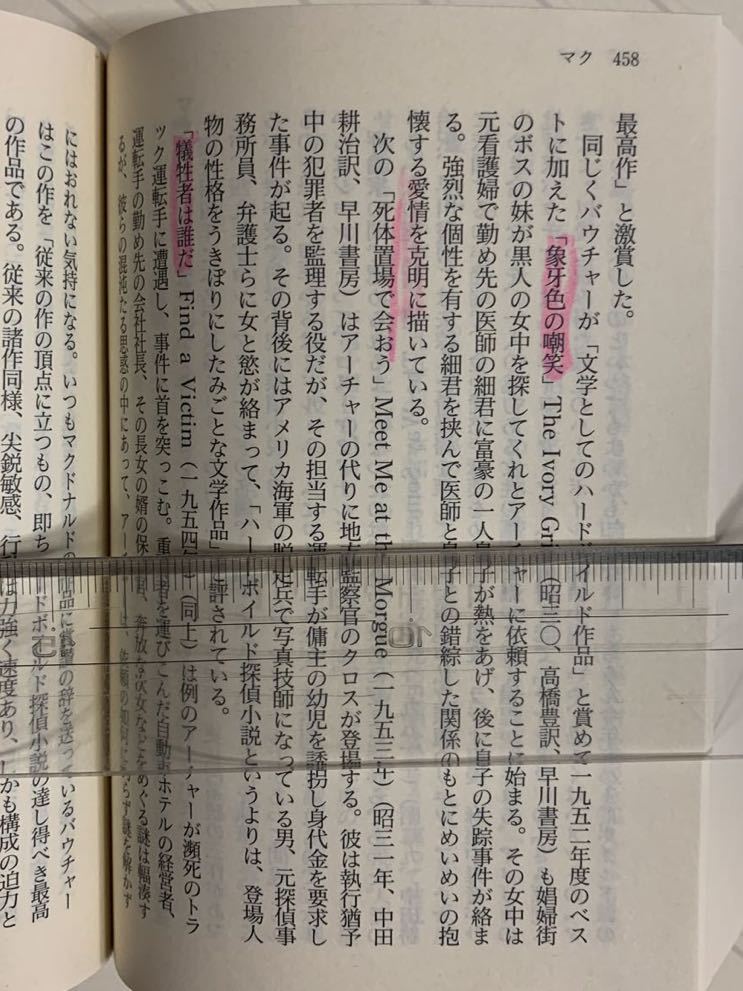 マク 458
最高作」と激賞した。
同じくバウチャーが「文学としてのハードボイルド作品」と賞めて一九五二年度のベス
トに加えた「象牙色の嘲笑」The Ivory Gri（昭三〇、高橋豊訳、早川書房）も娼婦街
のボスの妹が黒人の女中を探してくれとアーチャーに依頼することに始まる。その女中は
元看護婦で勤め先の医師の細君に富豪の一人息子が熱をあげ、後に息子の失踪事件が絡ま
る。強烈な個性を有する細君を挟んで医師と息子との錯綜した関係のもとにめいめいの抱
懐する愛情を克明に描いている。
次の「死体置場で会おう」Meet Me at the Morgue（一九五三年）（昭三一年、中田
耕治訳、早川書房）はアーチャーの代りに地方監察官のクロスが登場する。彼は執行猶予
中の犯罪者を監理する役だが、その担当する運転手が傭主の幼児を誘拐し身代金を要求し
た事件が起る。その背後にはアメリカ海軍の脱走兵で写真技師になっている男、元探偵事
務所員、弁護士らに女と慾が絡まって、「ハードボイルド探偵小説というよりは、登場人
物の性格をうきぼりにしたみごとな文学作品」と評されている。
「犠牲者は誰だ」Find a Victim（一九五四年）（同上）は例のアーチャーが瀕死のトラ
ック運転手に遭遇し、事件に首を突っこむ。重傷者を運びこんだ自動車ホテルの経営者、
運転手の勤め先の会社社長、その長女の婿の保安官、奔放な次女などをめぐる謎は輻湊す
るが、彼らの混沌たる思惑の中にあって、アーチャーは、依頼の如何にかかわらず謎を解かず
にはおれない気持になる。いつもマクドナルドの作品に賞讃の辞を送っているバウチャー
はこの作を「従来の作の頂点に立つもの、即ちハードボイルド探偵小説の達し得べき最高
の作品である。従来の諸作同様、尖鋭敏感、行は力強く速度あり、しかも構成の迫力と